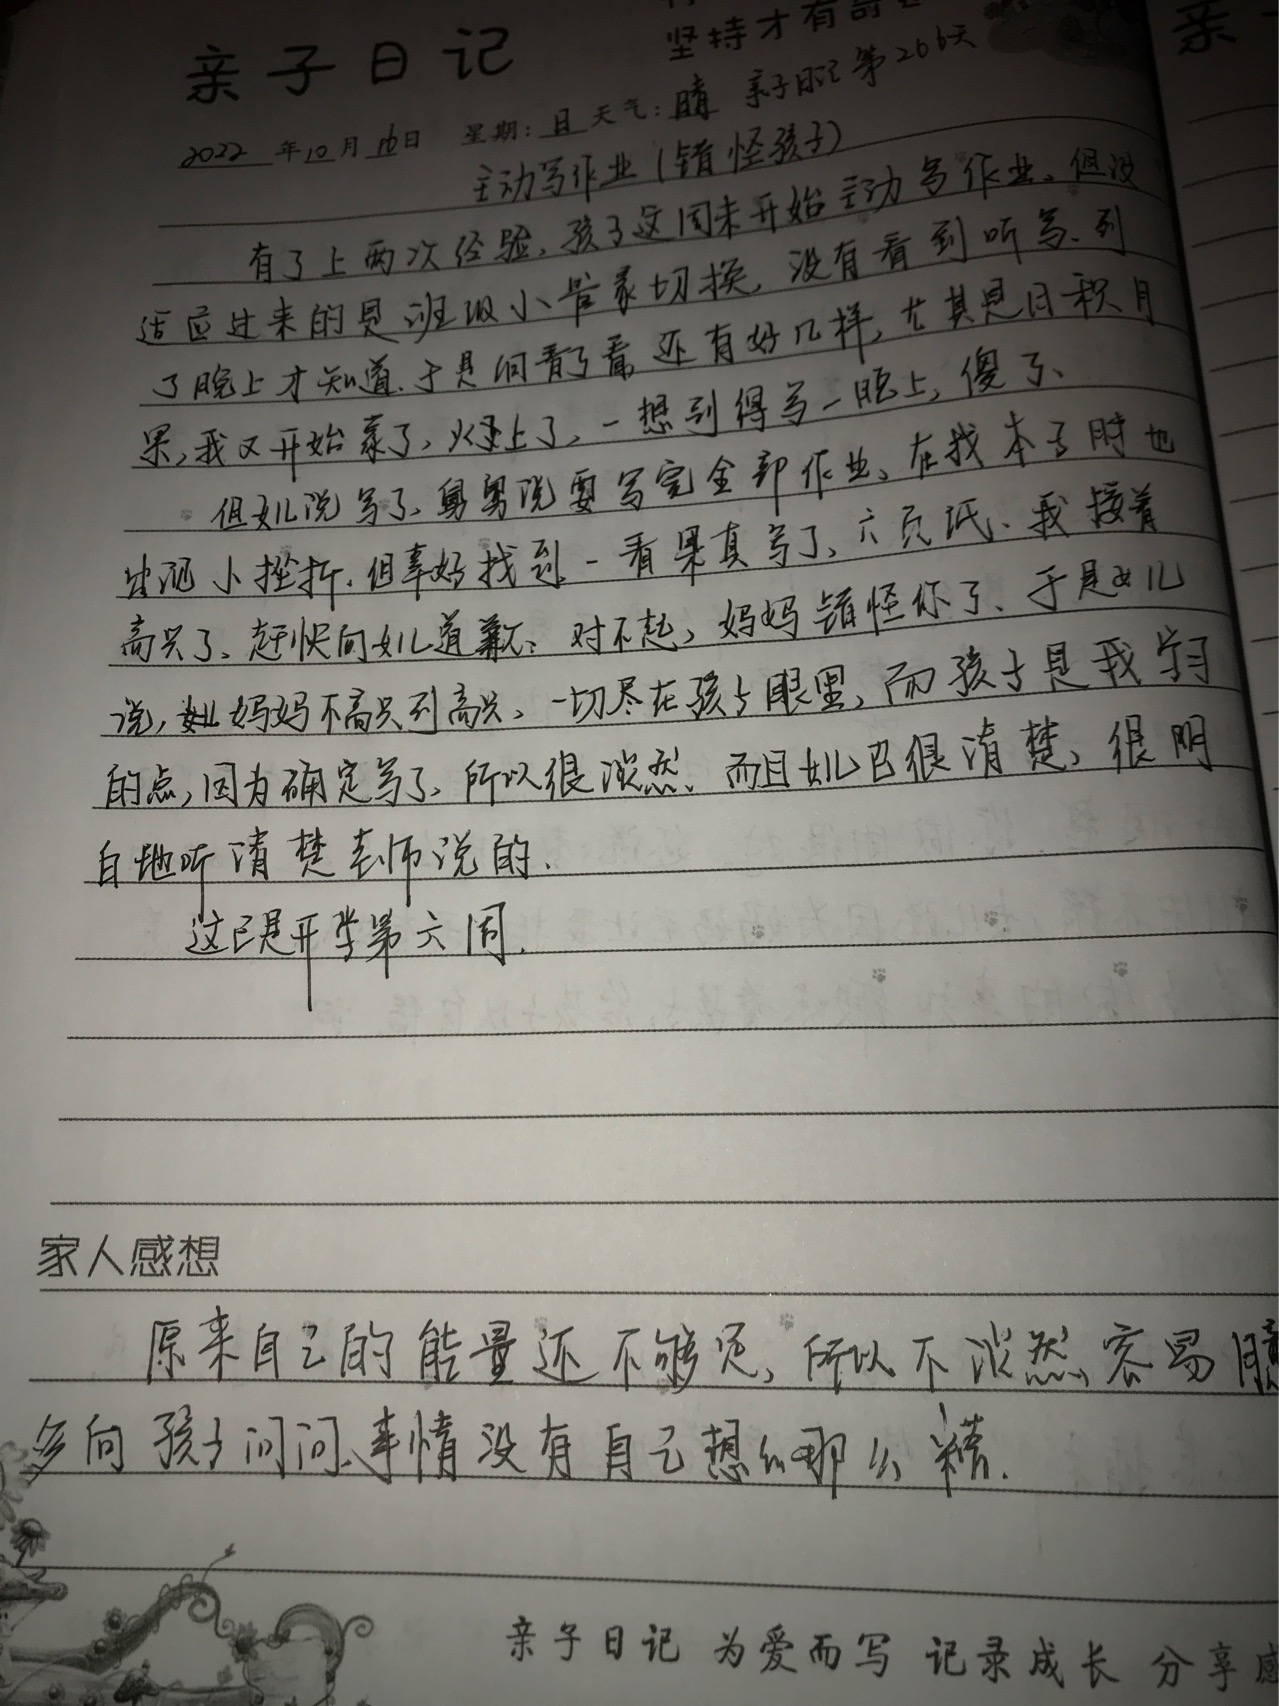 坚持才有
亲子日记
亲
2022年10月16日 星期:日 天气:晴 亲子日记第266天
主动写作业(错怪孩子)
有了上两次经验,孩子这周末开始主动写作业、但没
适应过来的是班级小管家切换,没有看到听写、到
了晚上才知道.于是问看了看还有好几样,尤其是日积月
累,我又开始急了,火上了,一想到得写一晚上,傻了、
但女儿说写了、舅舅说要写完全部作业、在找本子时也
出现小挫折.但幸好找到一看果真写了、六页纸、我接着
高兴了、赶快向女儿道歉:对不起,妈妈错怪你了、于是女儿
说,妈妈不高兴到高兴、一切尽在孩子眼里,而孩子是我学习
的点,因为确定写了、所以很淡然、而且女儿已很清楚、很明
白地听清楚老师说的.
这已是开学第六周.
家人感想
原来自己的能量还不够足,所以不淡然、容易
多向孩子问问、事情没有自己想的那么糟.
亲子日记 为爱而写 记录成长 分享